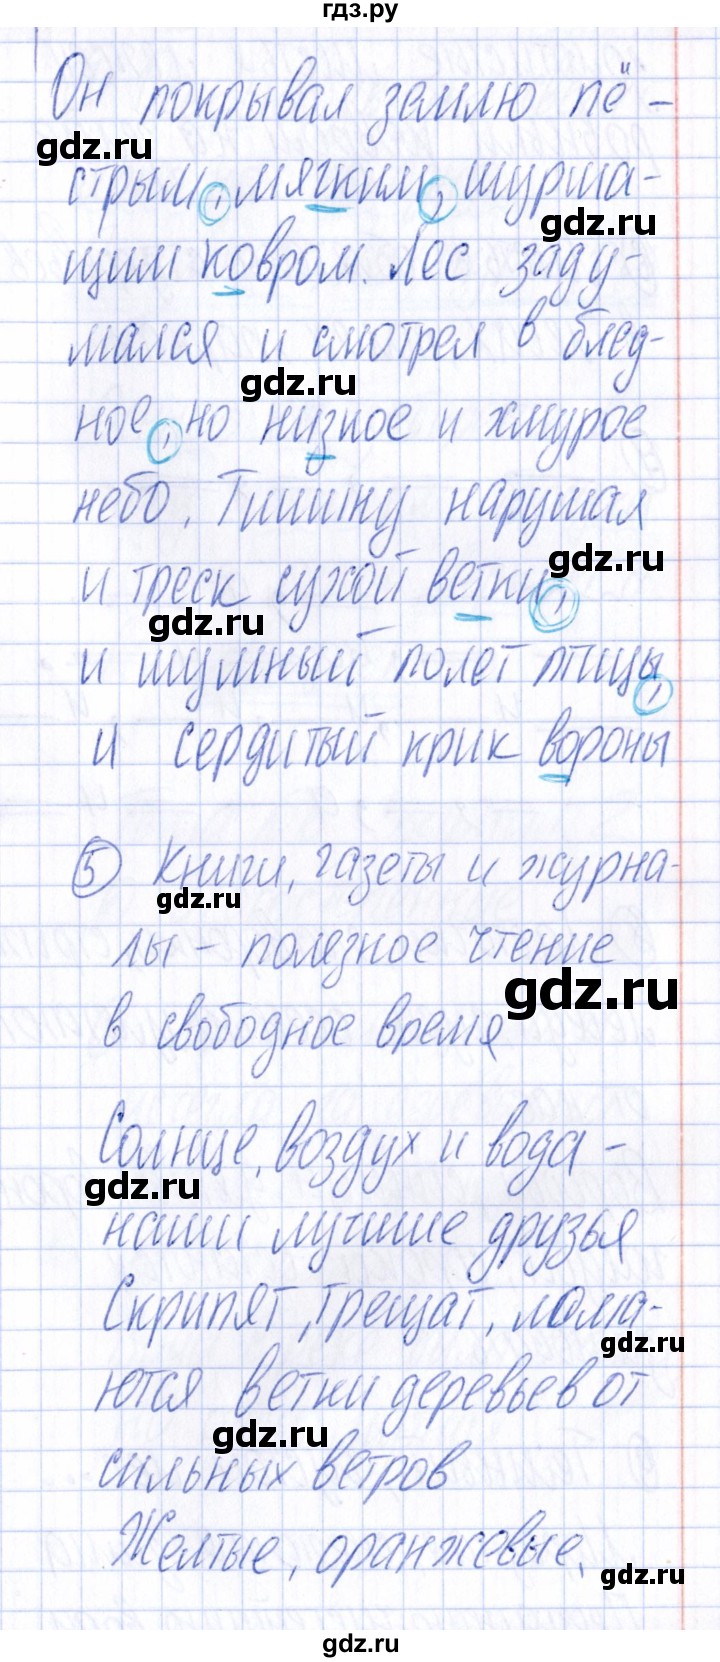 гдз.ру
Он покрывал землю пё-
gdz.ru
стрым, мягким, шурша-
gdz.ru
щим ковром. Лес заду-
мался и смотрел в блед-
gdz.ru
ное, но низкое и хмурое
небо. Тишину нарушал
gdz.ru
и треск сухой ветки,
gdz.ru
и шумный полет птицы,
и сердитый крик вороны
5 Книги, газеты и журна-
gdz.ru
лы - полезное чтение
gdz.ru
в свободное время
Солнце, воздух и вода -
gdz.ru
наши лучшие друзья
Скрипят, трещат, лома-
gdz.ru
ются ветки деревьев от
gdz.ru
сильных ветров
Желтые, оранжевые,
gdz.ru
gdz.ru